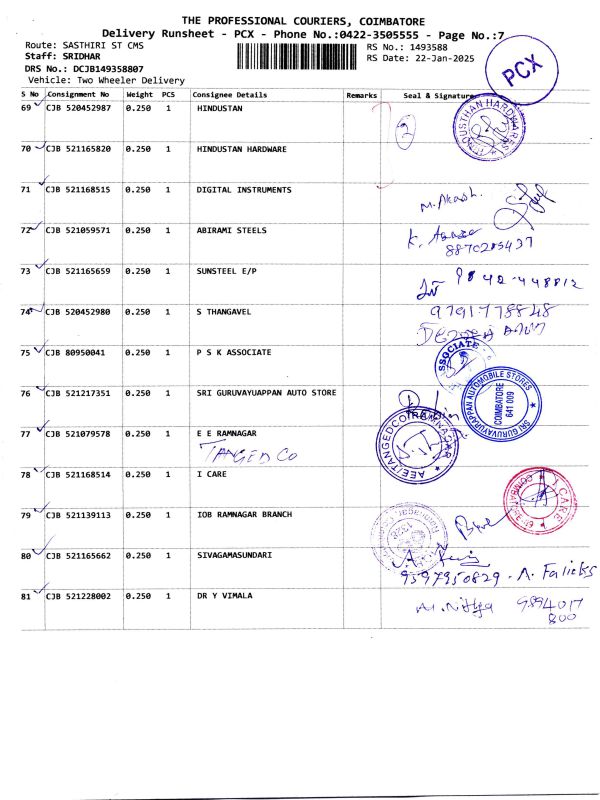 THE PROFESSIONAL COURIERS, COIMBATORE
Delivery Runsheet - PCX - Phone No.:0422-3505555 - Page No.:7
Route: SASTHIRI ST CMS RS No.: 1493588
Staff: SRIDHAR RS Date: 22-Jan-2025
DRS No.: DCJB149358807
Vehicle: Two Wheeler Delivery
PCX
S No Consignment No Weight PCS Consignee Details Remarks Seal & Signature
69 CJB 520452987 0.250 1 HINDUSTAN 2
HINDUSTHAN HARDWARES
70 CJB 521165820 0.250 1 HINDUSTAN HARDWARE
71 CJB 521168515 0.250 1 DIGITAL INSTRUMENTS M. Akash.
72 CJB 521059571 0.250 1 ABIRAMI STEELS K.
8870205437
73 CJB 521165659 0.250 1 SUNSTEEL E/P 9842-448812
74 CJB 520452980 0.250 1 S THANGAVEL 9791778848
75 CJB 80950041 0.250 1 P S K ASSOCIATE
SSOCIATE
76 CJB 521217351 0.250 1 SRI GURUVAYUAPPAN AUTO STORE
SRI GURUVAYURAPPAN AUTOMOBILE STORES
COIMBATORE
641 009
77 CJB 521079578 0.250 1 E E RAMNAGAR
TANGEDCO
AEE/TANGEDCO/RAMNAGAR
78 CJB 521168514 0.250 1 I CARE
I CARE
79 CJB 521139113 0.250 1 IOB RAMNAGAR BRANCH
80 CJB 521165662 0.250 1 SIVAGAMASUNDARI
9597950829 - A.
81 CJB 521228002 0.250 1 DR Y VIMALA M. Nithya 9894017
800